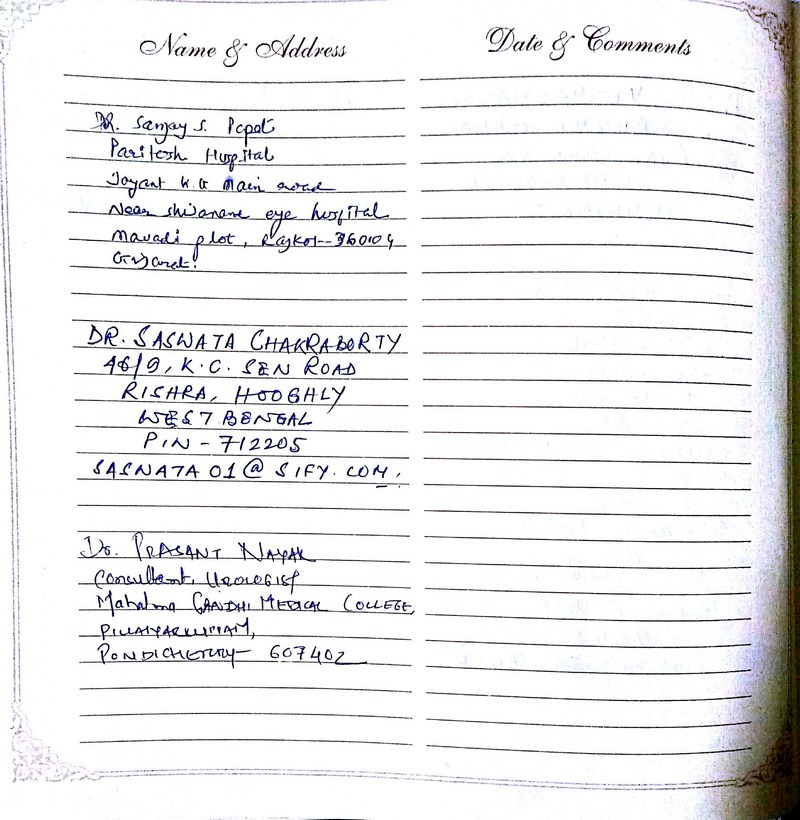 Name & Address
Date & Comments
DR. Sanjay S. Popat
Paritosh Hospital
Jayant K.G Main road
Near shivanand eye hospital
Mavadi plot, Rajkot--360004
Gujarat.
DR. SASWATA CHAKRABORTY
46/9, K.C. SEN ROAD
RISHRA, HOOGHLY
WEST BENGAL
PIN - 712205
SASWATA01@SIFY.COM.
Dr. PRASANT NAYAK
Consultant, UROLOGIST
Mahatma GANDHI MEDICAL COLLEGE,
PILLAIYARKUPPAM,
PONDICHERRY- 607402